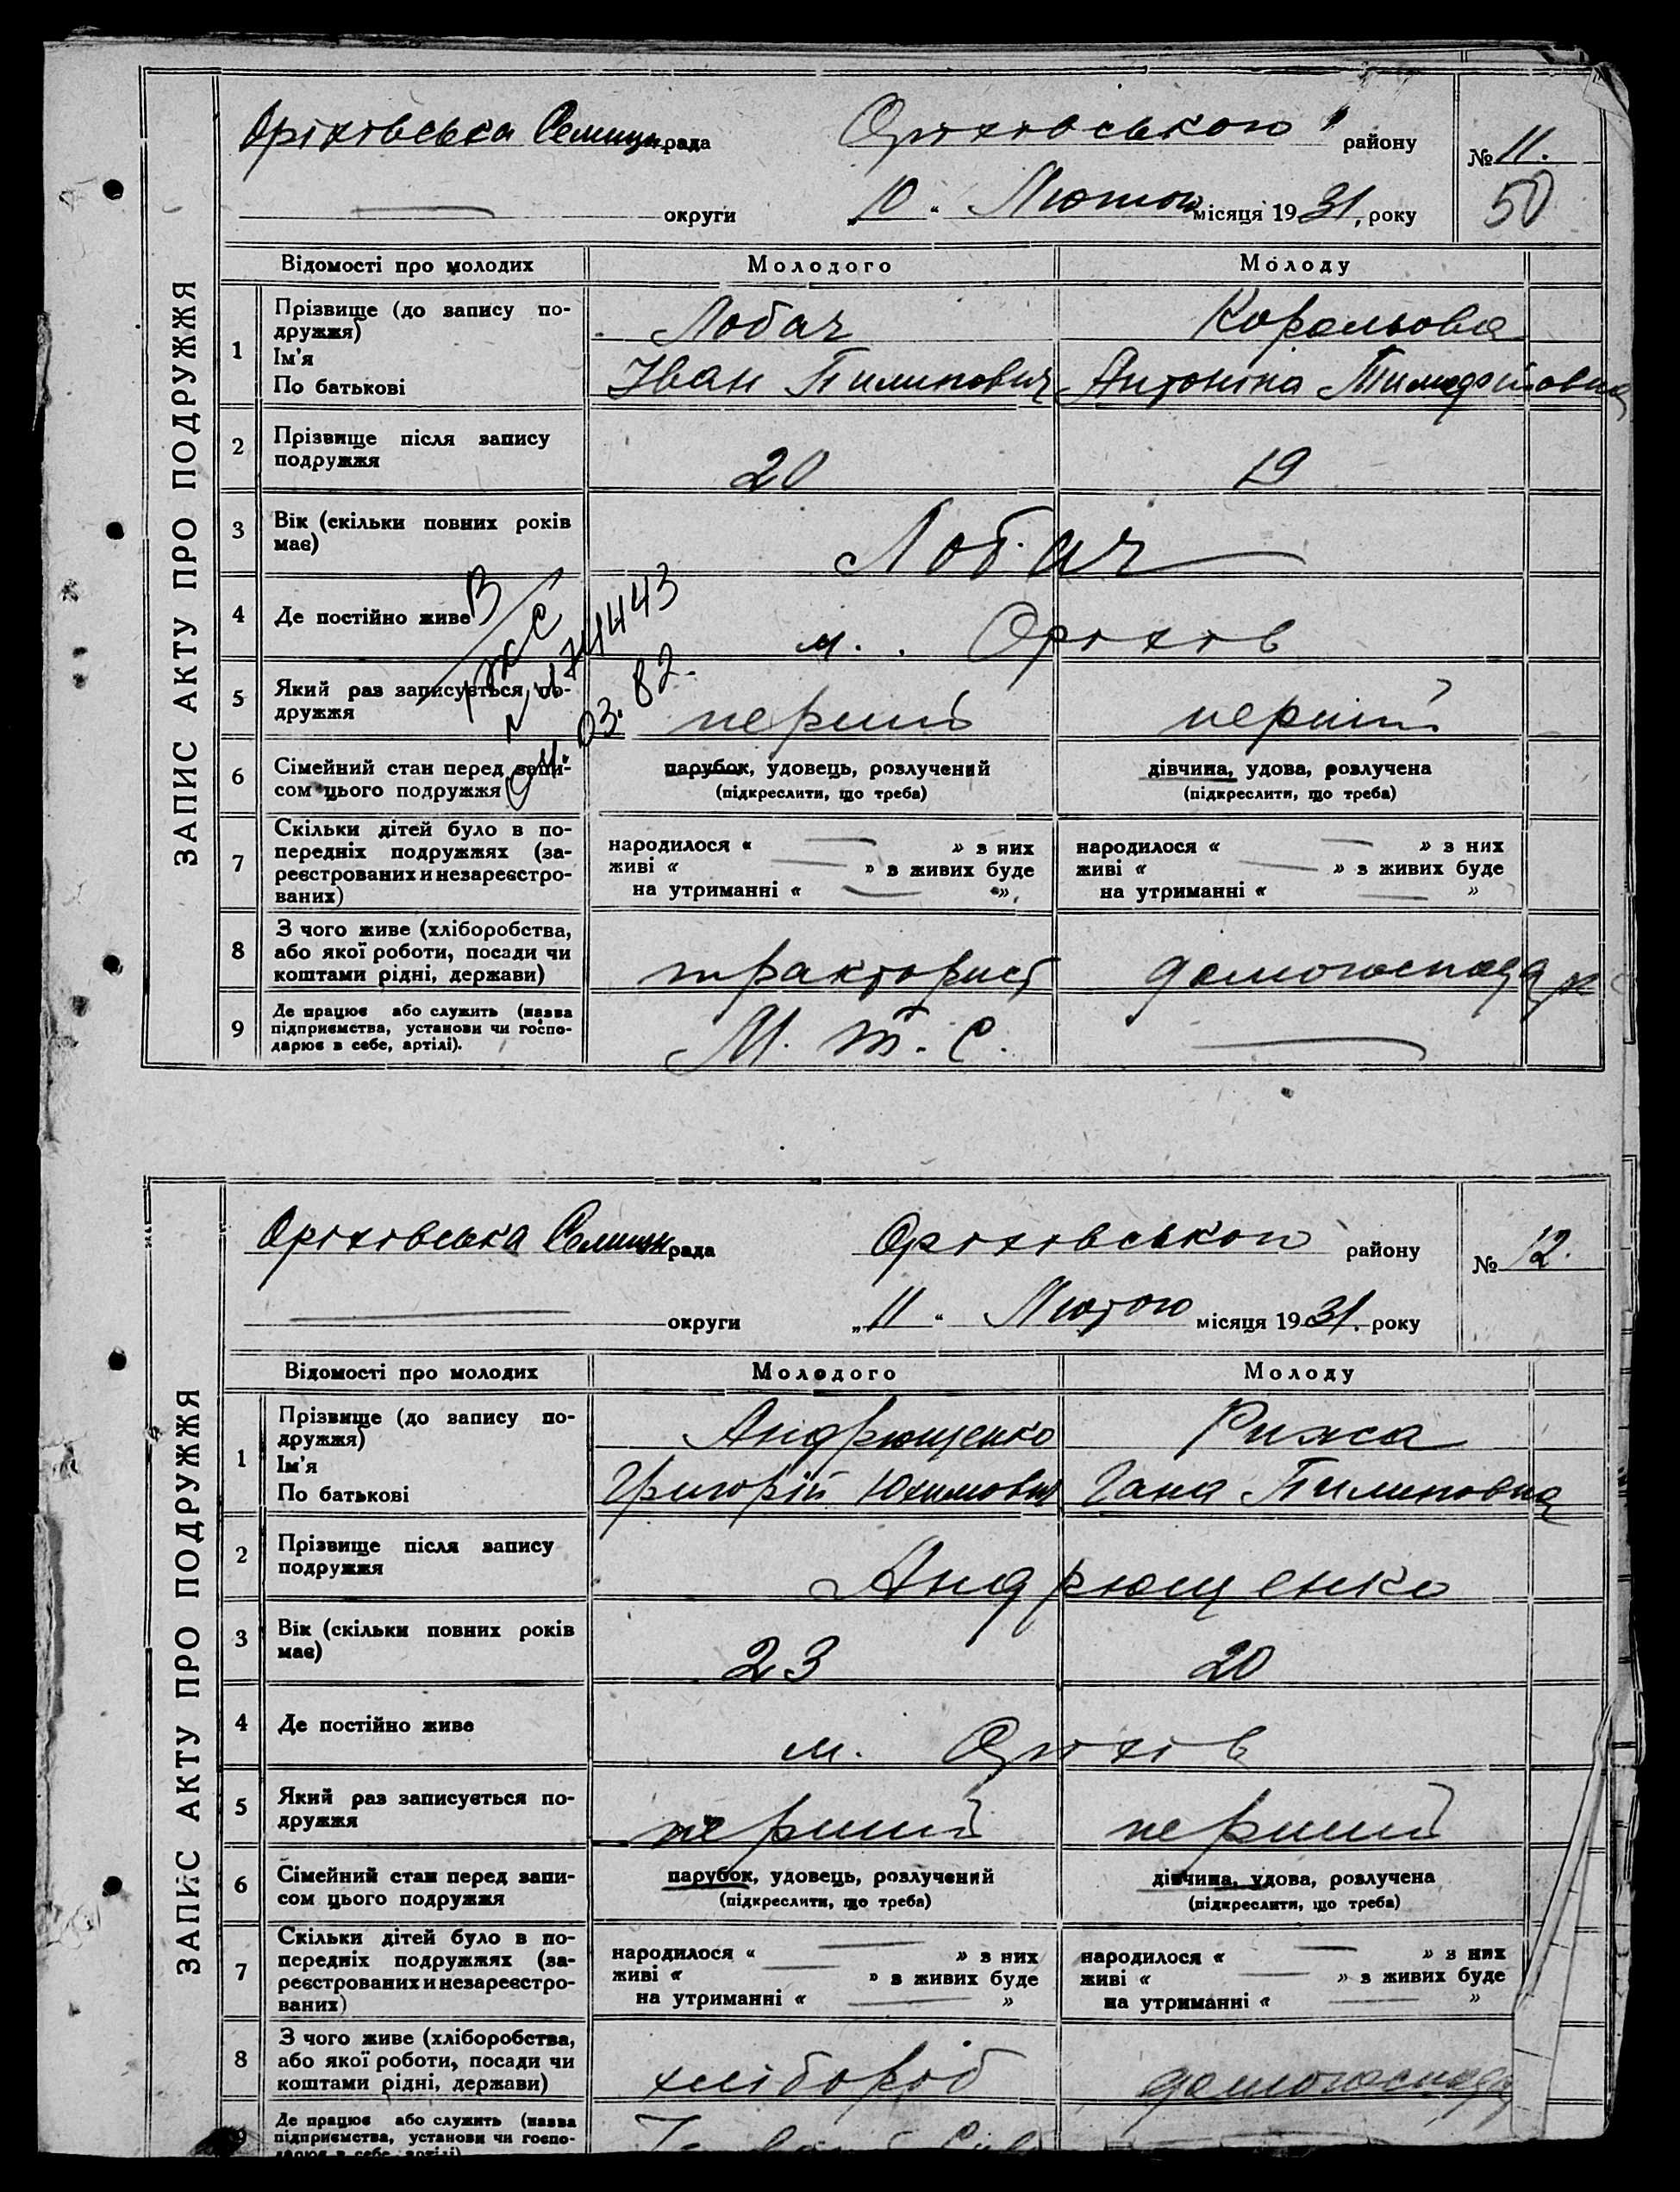 ЗАПИС АКТУ ПРО ПОДРУЖЖЯ
Оріхівська Селищн. рада Оріхівського району № 11.
округи „10“ Лютого місяця 1931, року 50
Відомості про молодих Молодого Молоду
1 Прізвище (до запису по-
дружжя) Лобач Корольова
Ім'я
По батькові Іван Пилипович Антоніна Тимофіївна
2 Прізвище після запису
подружжя 20 19
3 Вік (скільки повних років
має) Лобач
4 Де постійно живе м. Оріхів
5 Який раз записується по-
дружжя перший перший
6 Сімейний стан перед запи-
сом цього подружжя
парубок, удовець, розлучений дівчина, удова, розлучена
(підкреслити, що треба) (підкреслити, що треба)
7 Скільки дітей було в по-
передніх подружжях (за-
реєстрованих и незареєстро-
ваних)
народилося « » з них народилося « » з них
живі « » з живих буде живі « » з живих буде
на утриманні « » на утриманні « »
8 З чого живе (хліборобства,
або якої роботи, посади чи
коштами рідні, держави) тракторист домогосподарк
9 Де працює або служить (назва
підприємства, установи чи госпо-
дарює в себе, артілі). М. Т. С.
03. 82.
ЗАПИС АКТУ ПРО ПОДРУЖЖЯ
Оріхівська Селищн рада Оріхівського району № 12.
округи „11“ Лютого місяця 1931. року
Відомості про молодих Молодого Молоду
1 Прізвище (до запису по-
дружжя) Андрющенко Рижа
Ім'я
По батькові Григорій Юхимович Гана Пилиповна
2 Прізвище після запису
подружжя Андрющенко
3 Вік (скільки повних років
має) 23 20
4 Де постійно живе м. Оріхів
5 Який раз записується по-
дружжя перший перший
6 Сімейний стан перед запи-
сом цього подружжя
парубок, удовець, розлучений дівчина, удова, розлучена
(підкреслити, що треба) (підкреслити, що треба)
7 Скільки дітей було в по-
передніх подружжях (за-
реєстрованих и незареєстро-
ваних)
народилося « » з них народилося « » з них
живі « » з живих буде живі « » з живих буде
на утриманні « » на утриманні « »
8 З чого живе (хліборобства,
або якої роботи, посади чи
коштами рідні, держави) хлібороб домогоспод
9 Де працює або служить (назва
підприємства, установи чи госпо-
дарює в себе, артілі)